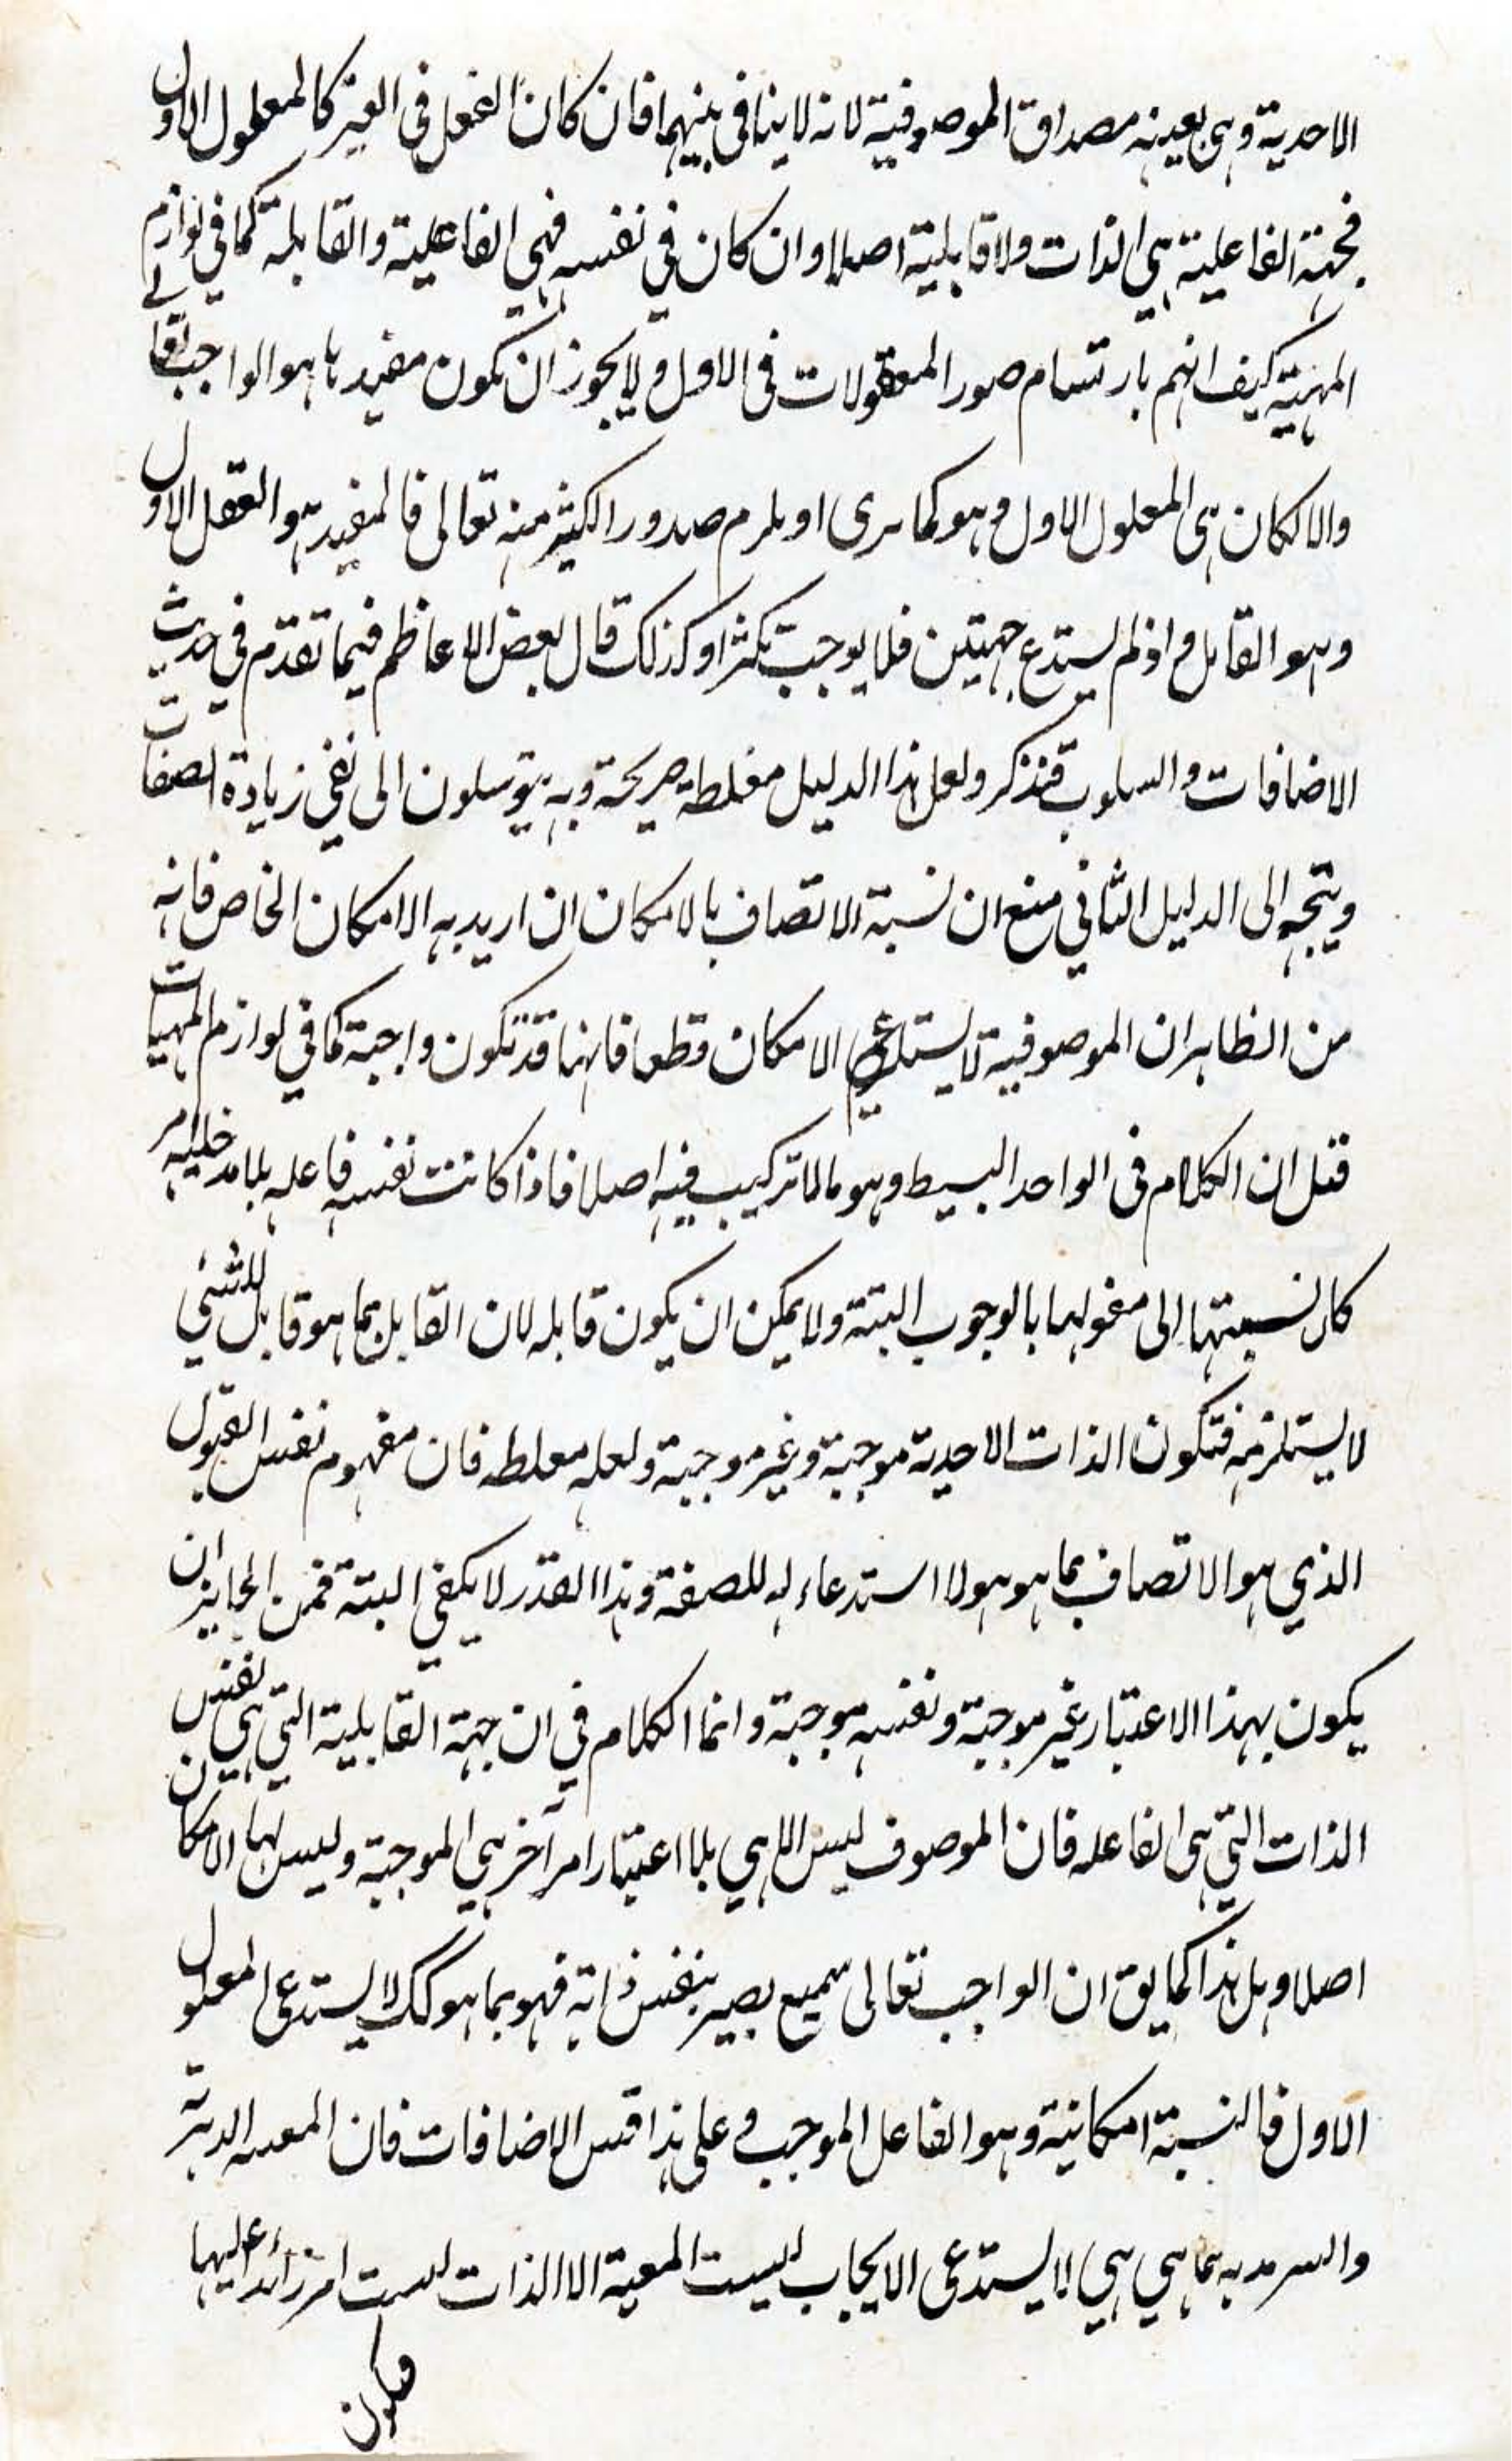 الاحدية وهى بعينه مصداق الموصوفية لانه لا ينافى بينهما فان كان الفعل فى الغير كالمعلول الاول
فجهة الفاعلية هى الذات ولا قابلية اصلا وان كان في نفسه فهى الفاعلية والقابلة كما في لوازم
المهية كيف انهم بارتسام صور المعقولات فى الاول ولا يجوز ان تكون مفيدها هو الواجب تعالى
والا لكان هى المعلول الاول وهو كما ترى او يلزم صدور الكثير منه تعالى فالمفيد هو العقل الاول
وهو القابل واذ لم يستدع جهتين فلا يوجب تكثرا وكذلك قال بعض الاعاظم فيما تقدم في حديث
الاضافات والسلوب فتذكر ولعل هذا الدليل مغلطة صريحة وبه يتوسلون الى نفى زيادة الصفات
ويتجه الى الدليل الثاني منع ان نسبة الاتصاف بالامكان ان اريد به الامكان الخاص فانه
من الظاهر ان الموصوفية لا يستدعى الامكان قطعا فانها قد تكون واجبة كما في لوازم المهيات
قيل ان الكلام فى الواحد البسيط وهو ما لا تركيب فيه اصلا فاذا كانت نفسه فاعله بلا مدخلية امر
كان نسبتها الى مفعولها بالوجوب البتة ولا يمكن ان يكون قابله لان القابل بما هو قابل للشئي
لا يستلزمه فتكون الذات الاحدية موجبة وغير موجبة ولعله مغلطه فان مفهوم نفس القبول
الذي هو الاتصاف بما هو هو لا استدعاء له للصفة وهذا القدر لا يكفي البتة فمن الجايز ان
يكون بهذا الاعتبار غير موجبة ونفسه موجبة وانما الكلام في ان جهة القابلية التي هى نفس
الذات التي هى الفاعله فان الموصوف ليس الا هي بلا اعتبار امر آخر هي الموجبة وليس لها الامكان
اصلا وهل هذا كما يق ان الواجب تعالى سميع بصير بنفس ذاته فهو بما هو كك لا يستدعى المعلول
الاول فالنسبة امكانية وهو الفاعل الموجب وعلى هذا قس الاضافات فان المعيه الدهرية
والسرمديه بما هي هي لا يستدعى الايجاب ليست المعية الا الذات ليست امر زائد عليها
فيكون